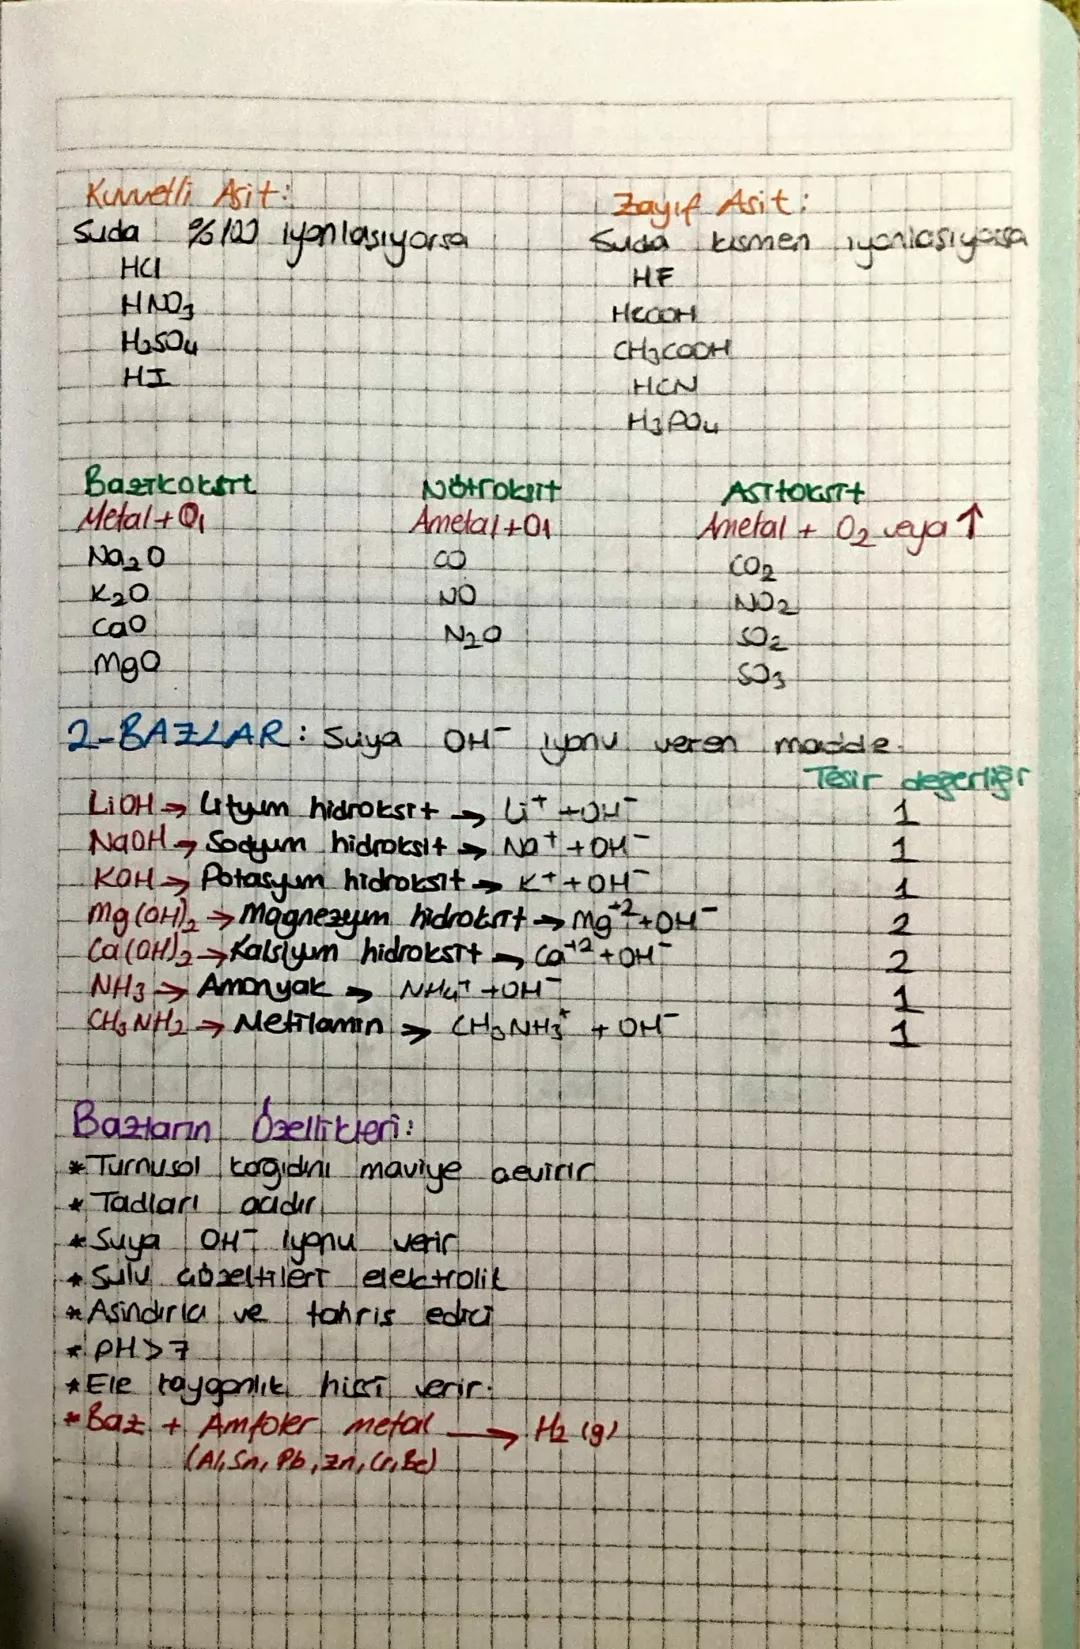 Kuvvetli Asit:
Suda %100 iyonlasıyorsa
HCl
HNO3
H2SO4
HI
Zayıf Asit:
Suda kısmen iyonlasıyorsa
HF
HCOOH
CH3COOH
HCN
H3PO4
Bazikoksit
Metal + O1
Na2O
K2O
CaO
MgO
Nötroksit
Ametal + O1
CO
NO
N2O
Asitoksit
Ametal + O2 veya ↑
CO2
NO2
SO2
SO3
2-BAZLAR: Suya OH⁻ iyonu veren madde.
Tesir değerliği
LiOH → Lityum hidroksit → Li⁺ + OH⁻ 1
NaOH → Sodyum hidroksit → Na⁺ + OH⁻ 1
KOH → Potasyum hidroksit → K⁺ + OH⁻ 1
Mg(OH)2 → Magnezyum hidroksit → Mg⁺² + OH⁻ 2
Ca(OH)2 → Kalsiyum hidroksit → Ca⁺² + OH⁻ 2
NH3 → Amonyak → NH4⁺ + OH⁻ 1
CH3NH2 → Metilamin → CH3NH3⁺ + OH⁻ 1
Bazların Özellikleri:
* Turnusol kağıdını maviye çevirir.
* Tadları acıdır.
* Suya OH⁻ iyonu verir
* Sulu çözeltileri elektrolit
* Asındırıcı ve tahris edici
* PH > 7
* Ele kayganlık hissi verir.
* Baz + Amfoter metal → H2 (g)
(Al, Sn, Pb, Zn, Cr, Be)